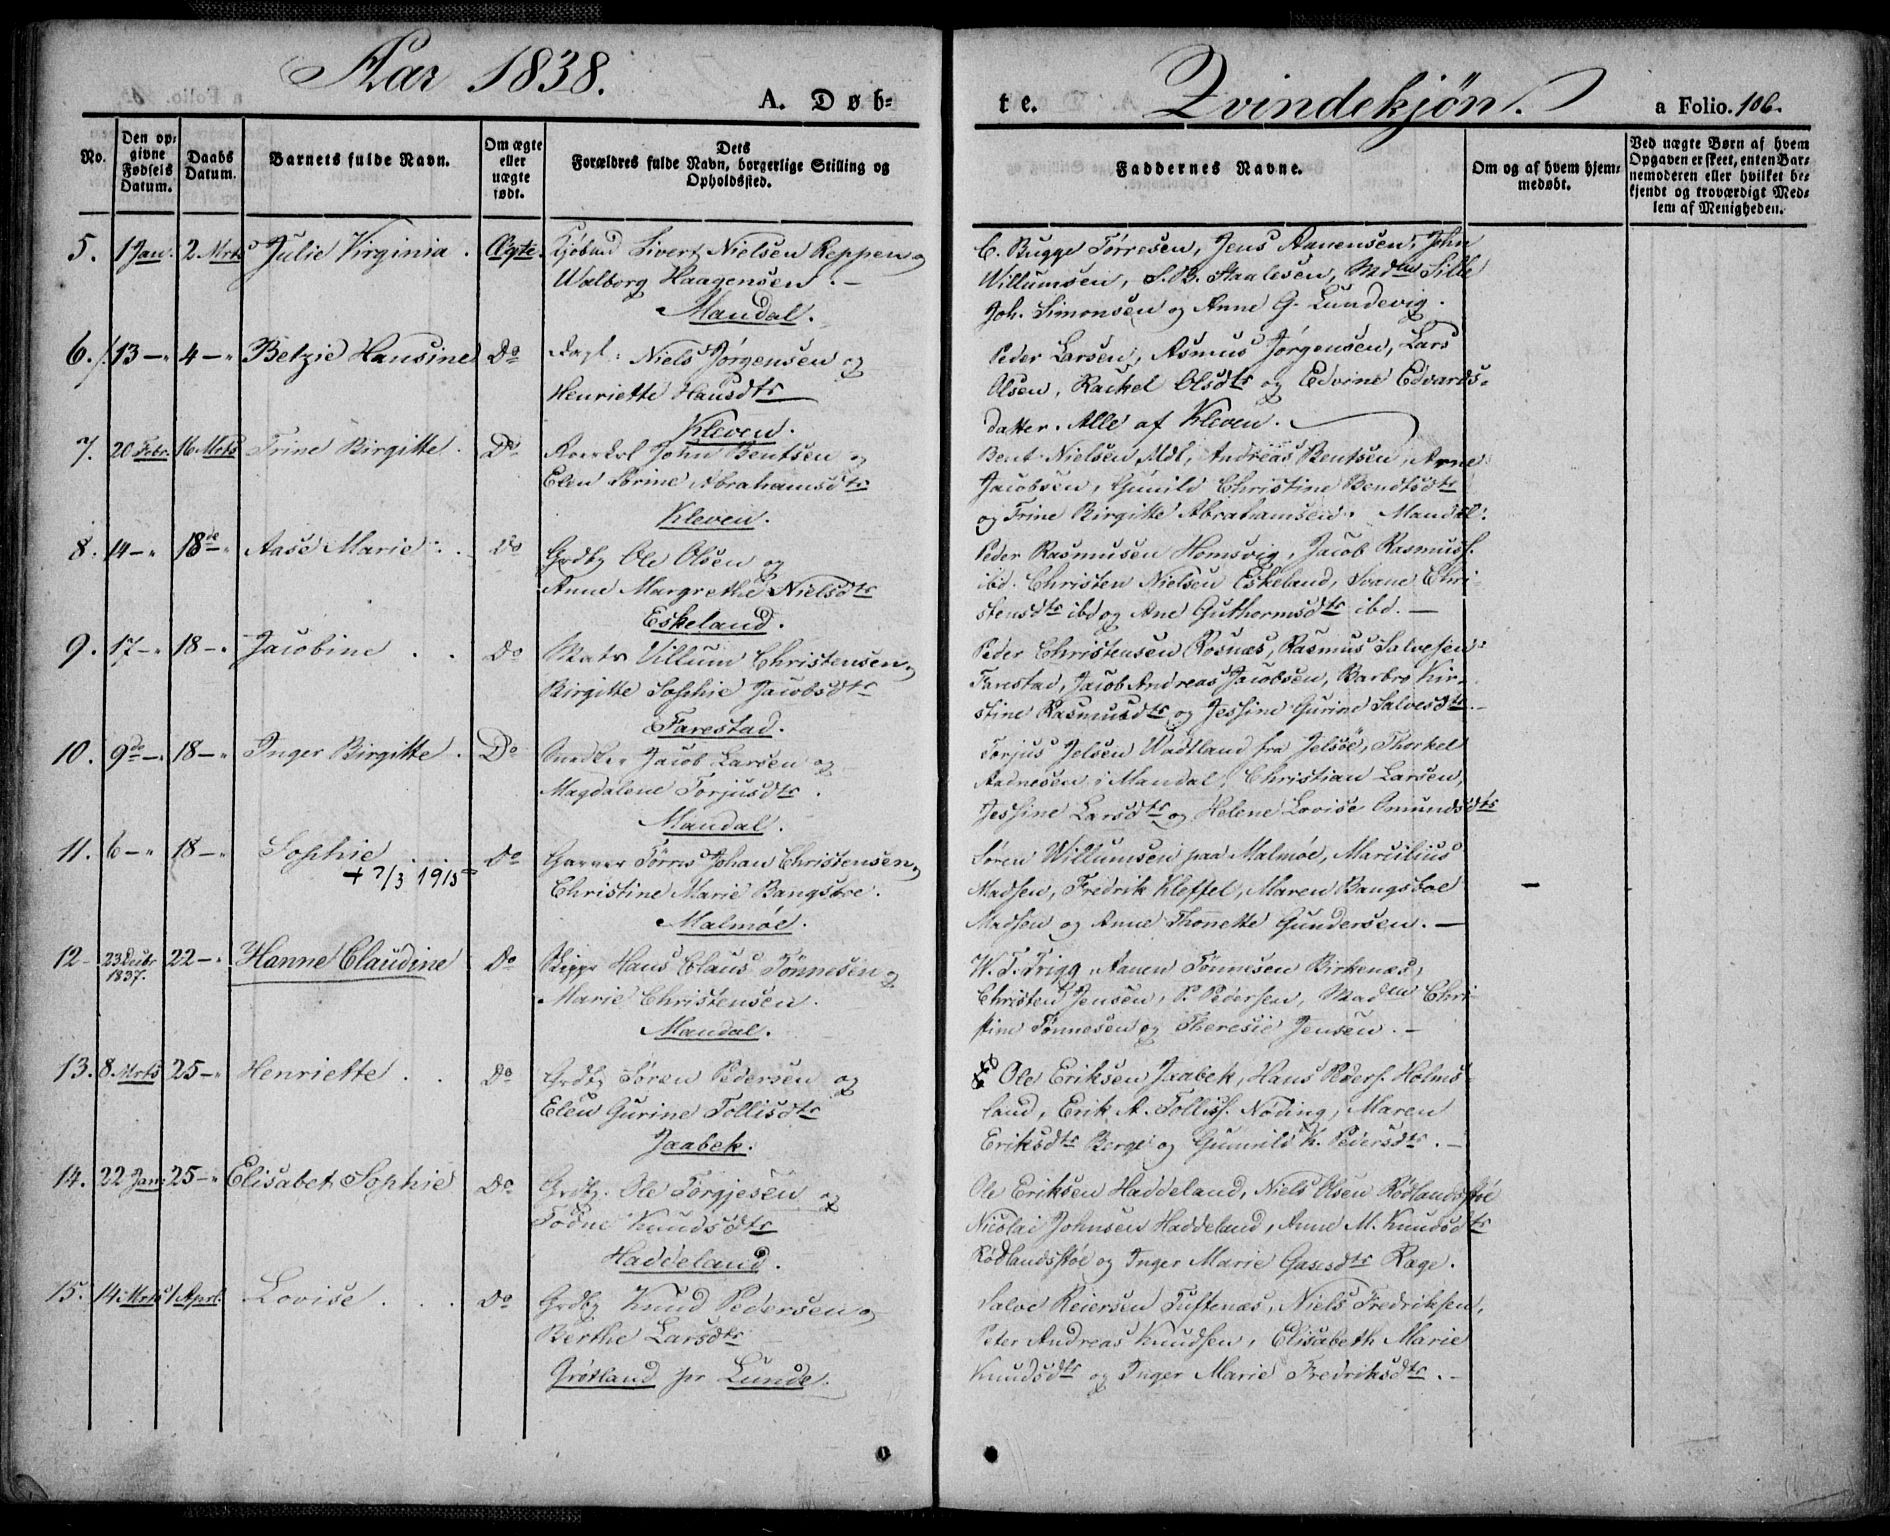 Aar 1838.
A. Døb-
te.
Qvindekjøn.
a Folio. 106.
No.
Den op-
givne
Fødsels
Datum.
Daabs
Datum.
Barnets fulde Navn.
Om ægte
eller
uægte
født.
Dets
Forældres fulde Navn, borgerlige Stilling og
Opholdssted.
Faddernes Navne.
Om og af hvem hjem-
medøbt.
Ved uægte Børn af hvem
Opgaven er skeet, enten Bar-
nemoderen eller hvilket be-
kjendt og troværdigt Med-
lem af Menigheden.
5. 1 Jan. 2 Mrts Julie Virginia. Ægte. Kjøbmd Sivert Nielsen Reppen og
Walborg Haagensen. -
Mandal.
C. Bugge Tørresen, Jens Aanensen, John
Willumsen, S. B. Staalesen, Mdm Sille
Joh. Simonsen og Anne G. Lundevig.
6. 13 - " 4 - " Betzie Hansine Do Niels Jørgensen og
Henriette Hansdtr
Kleven.
Peder Larsen, Asmus Jørgensen, Lars
Olsen, Rachel Olsdtr og Edvine Edvards-
datter. Alle af Kleven.
7. 20 Febr. 16 Mrts Trine Birgitte. Do John Bentsen og
Elen Sørine Abrahamsdtr
Kleven.
Bent Nielsen Mdl, Andreas Bentsen, Arne
Jacobsen, Gunild Christine Bendtsdtr
og Trine Birgitte Abrahamsen. Mandal.
8. 14 - " 18de " Aase Marie. Do Grdbg Ole Olsen og
Anne Margrethe Nielsdtr
Eskeland.
Peder Rasmusen Homsvig, Jacob Rasmuss.
ibd. Christen Nielsen Eskeland, Svane Chri-
stensdtr ibd og Ane Guthormsdtr ibd. -
9. 17 - " 18 - " Jacobine . . Do Matr Villum Christensen og
Birgitte Sophie Jacobsdtr
Farestad.
Peder Christensen Rosnæs, Rasmus Salvesen
Farestad, Jacob Andreas Jacobsen, Barbro Kir-
stine Rasmusdtr og Jessine Gurine Salvesdtr. -
10. 9de - " 18 - " Inger Birgitte. Do Snedker Jacob Larsen og
Magdalene Torjusdtr.
Mandal.
Torjus Jelsen Wadtland fra Jelsöe, Thorkel
Aadnesen i Mandal, Christian Larsen,
Jessine Larsdtr og Helene Lovise Omundsdtr
11. 6 - " 18 - " Sophie . . .
+ 7/3 1915
Do Garver Tørres Johan Christensen og
Christine Marie Bangsboe.
Malmøe.
Søren Willumsen paa Malmøe, Marcilius
Madsen, Fredrik Kloffel, Maren Bangsboe
Madsen og Anne Thonette Gundersen. -
-
12 - 23 Decbr
1837.
22 - " Hanne Claudine Do Skippr Hans Claus Tönnesen og
Marie Christensen.
Mandal.
W. T. Trigg, Aanen Tönnesen Birkenæs,
Christen Jensen, P. Pedersen, Madm Chri-
stine Tönnesen og Theresie Jensen. -
13. 8 Mrts 25 - " Henriette . . Do Grdbg Søren Pedersen og
Elen Gurine Tollisdtr
Jaabek.
Ole Eriksen Jaabek, Hans Peders. Holms-
land, Erik A. Tolliss. Nöding, Maren
Eriksdtr Berge og Gunnild K. Pedersdtr. -
14. 22 Jan: 25 - " Elisabet Sophie Do Grdbg. Ole Torgjesen og
Todne Knudsdtr
Haddeland.
Ole Eriksen Haddeland, Niels Olsen Rödlandsstøe
Nicolai Johnsen Haddeland, Anne M. Knudsdtr
Rödlandsstøe og Inger Marie Gasesdtr Ræge.
15. 14 Mrts 1 Aprl. Lovise . . . Do Grdbg Knud Pedersen og
Berthe Larsdtr
Grøtland pr Lunde.
Salve Reiersen Tuftenæs, Niels Fredriksen,
Peter Andreas Knudsen, Elisabeth Marie
Knudsdtr og Inger Marie Fredriksdtr. -